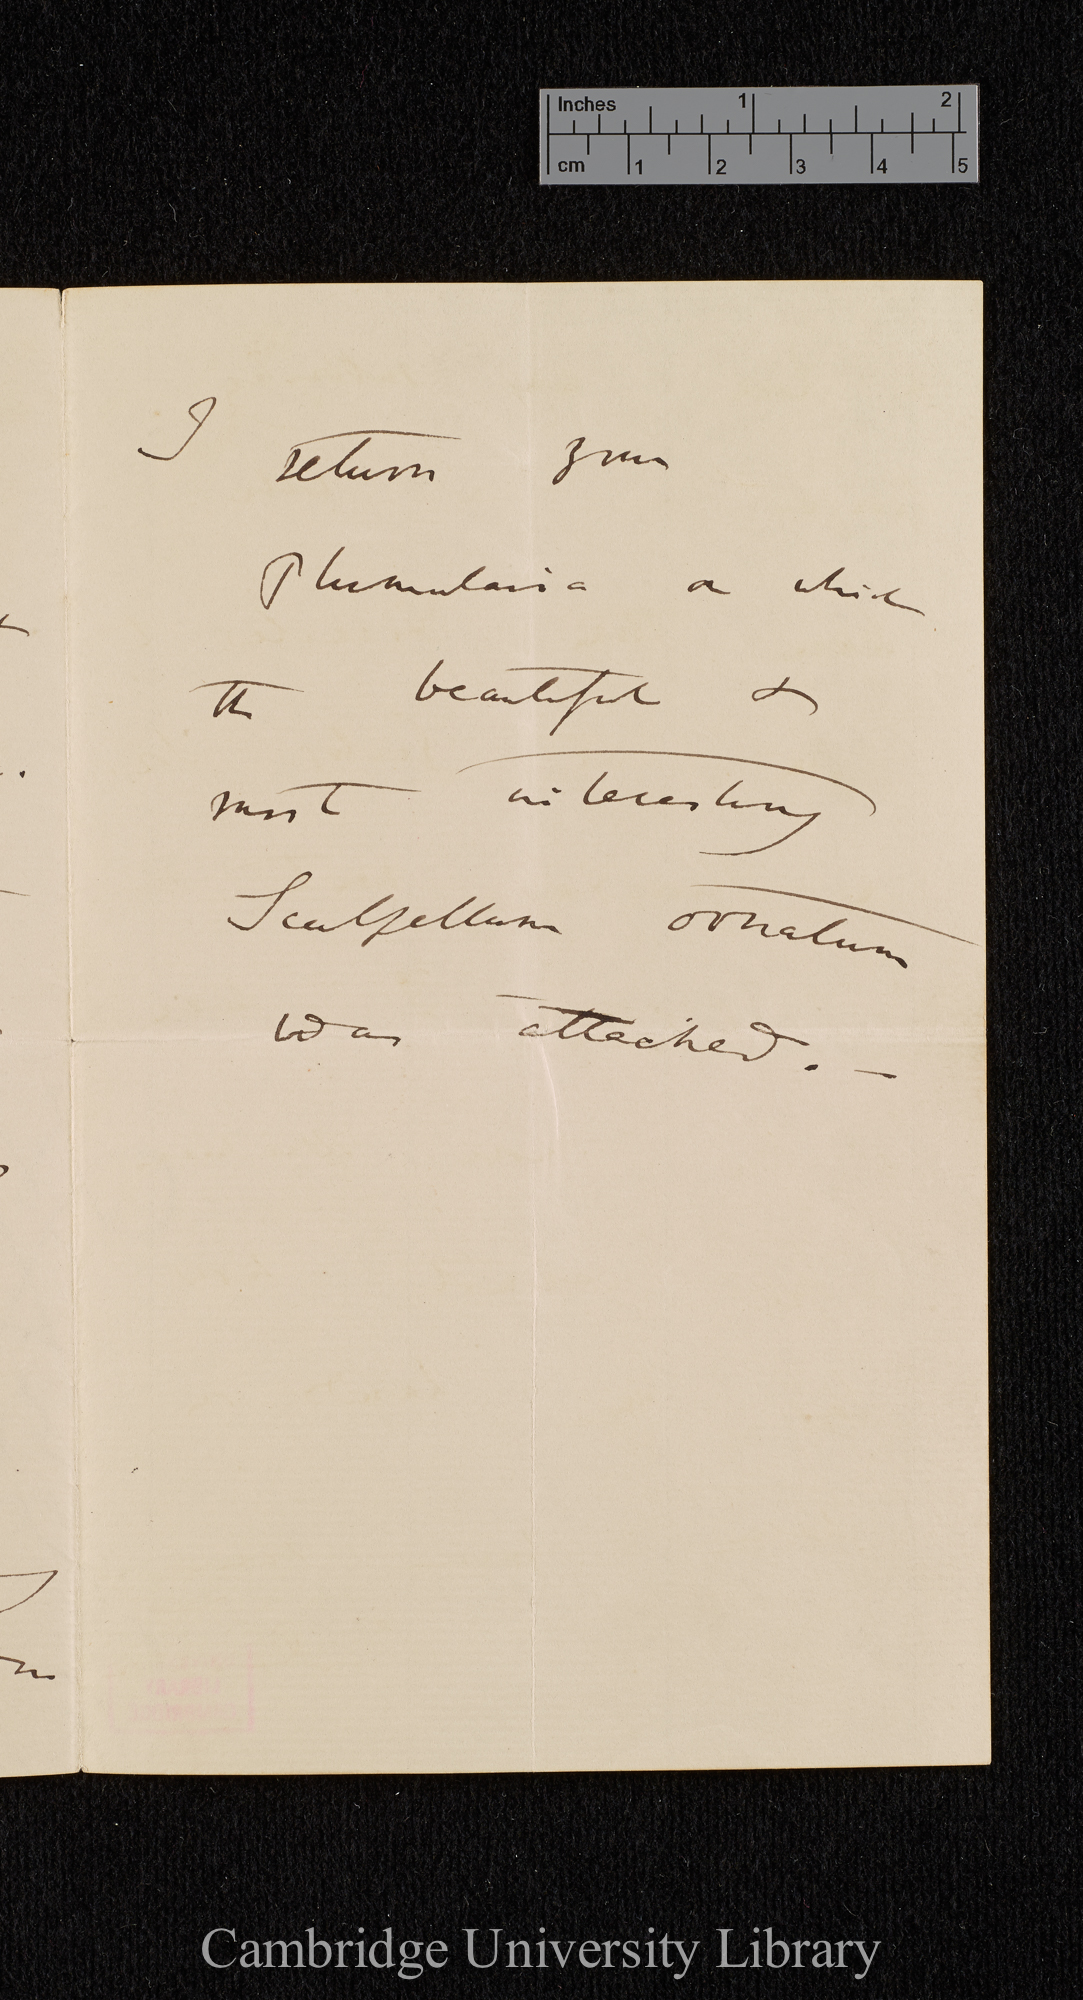 Inches 1 2
cm 1 2 3 4 5
I return your
Plumularia on which
the beautiful &
most interesting
Scalpellum ornatum
was attached. —
Cambridge University Library